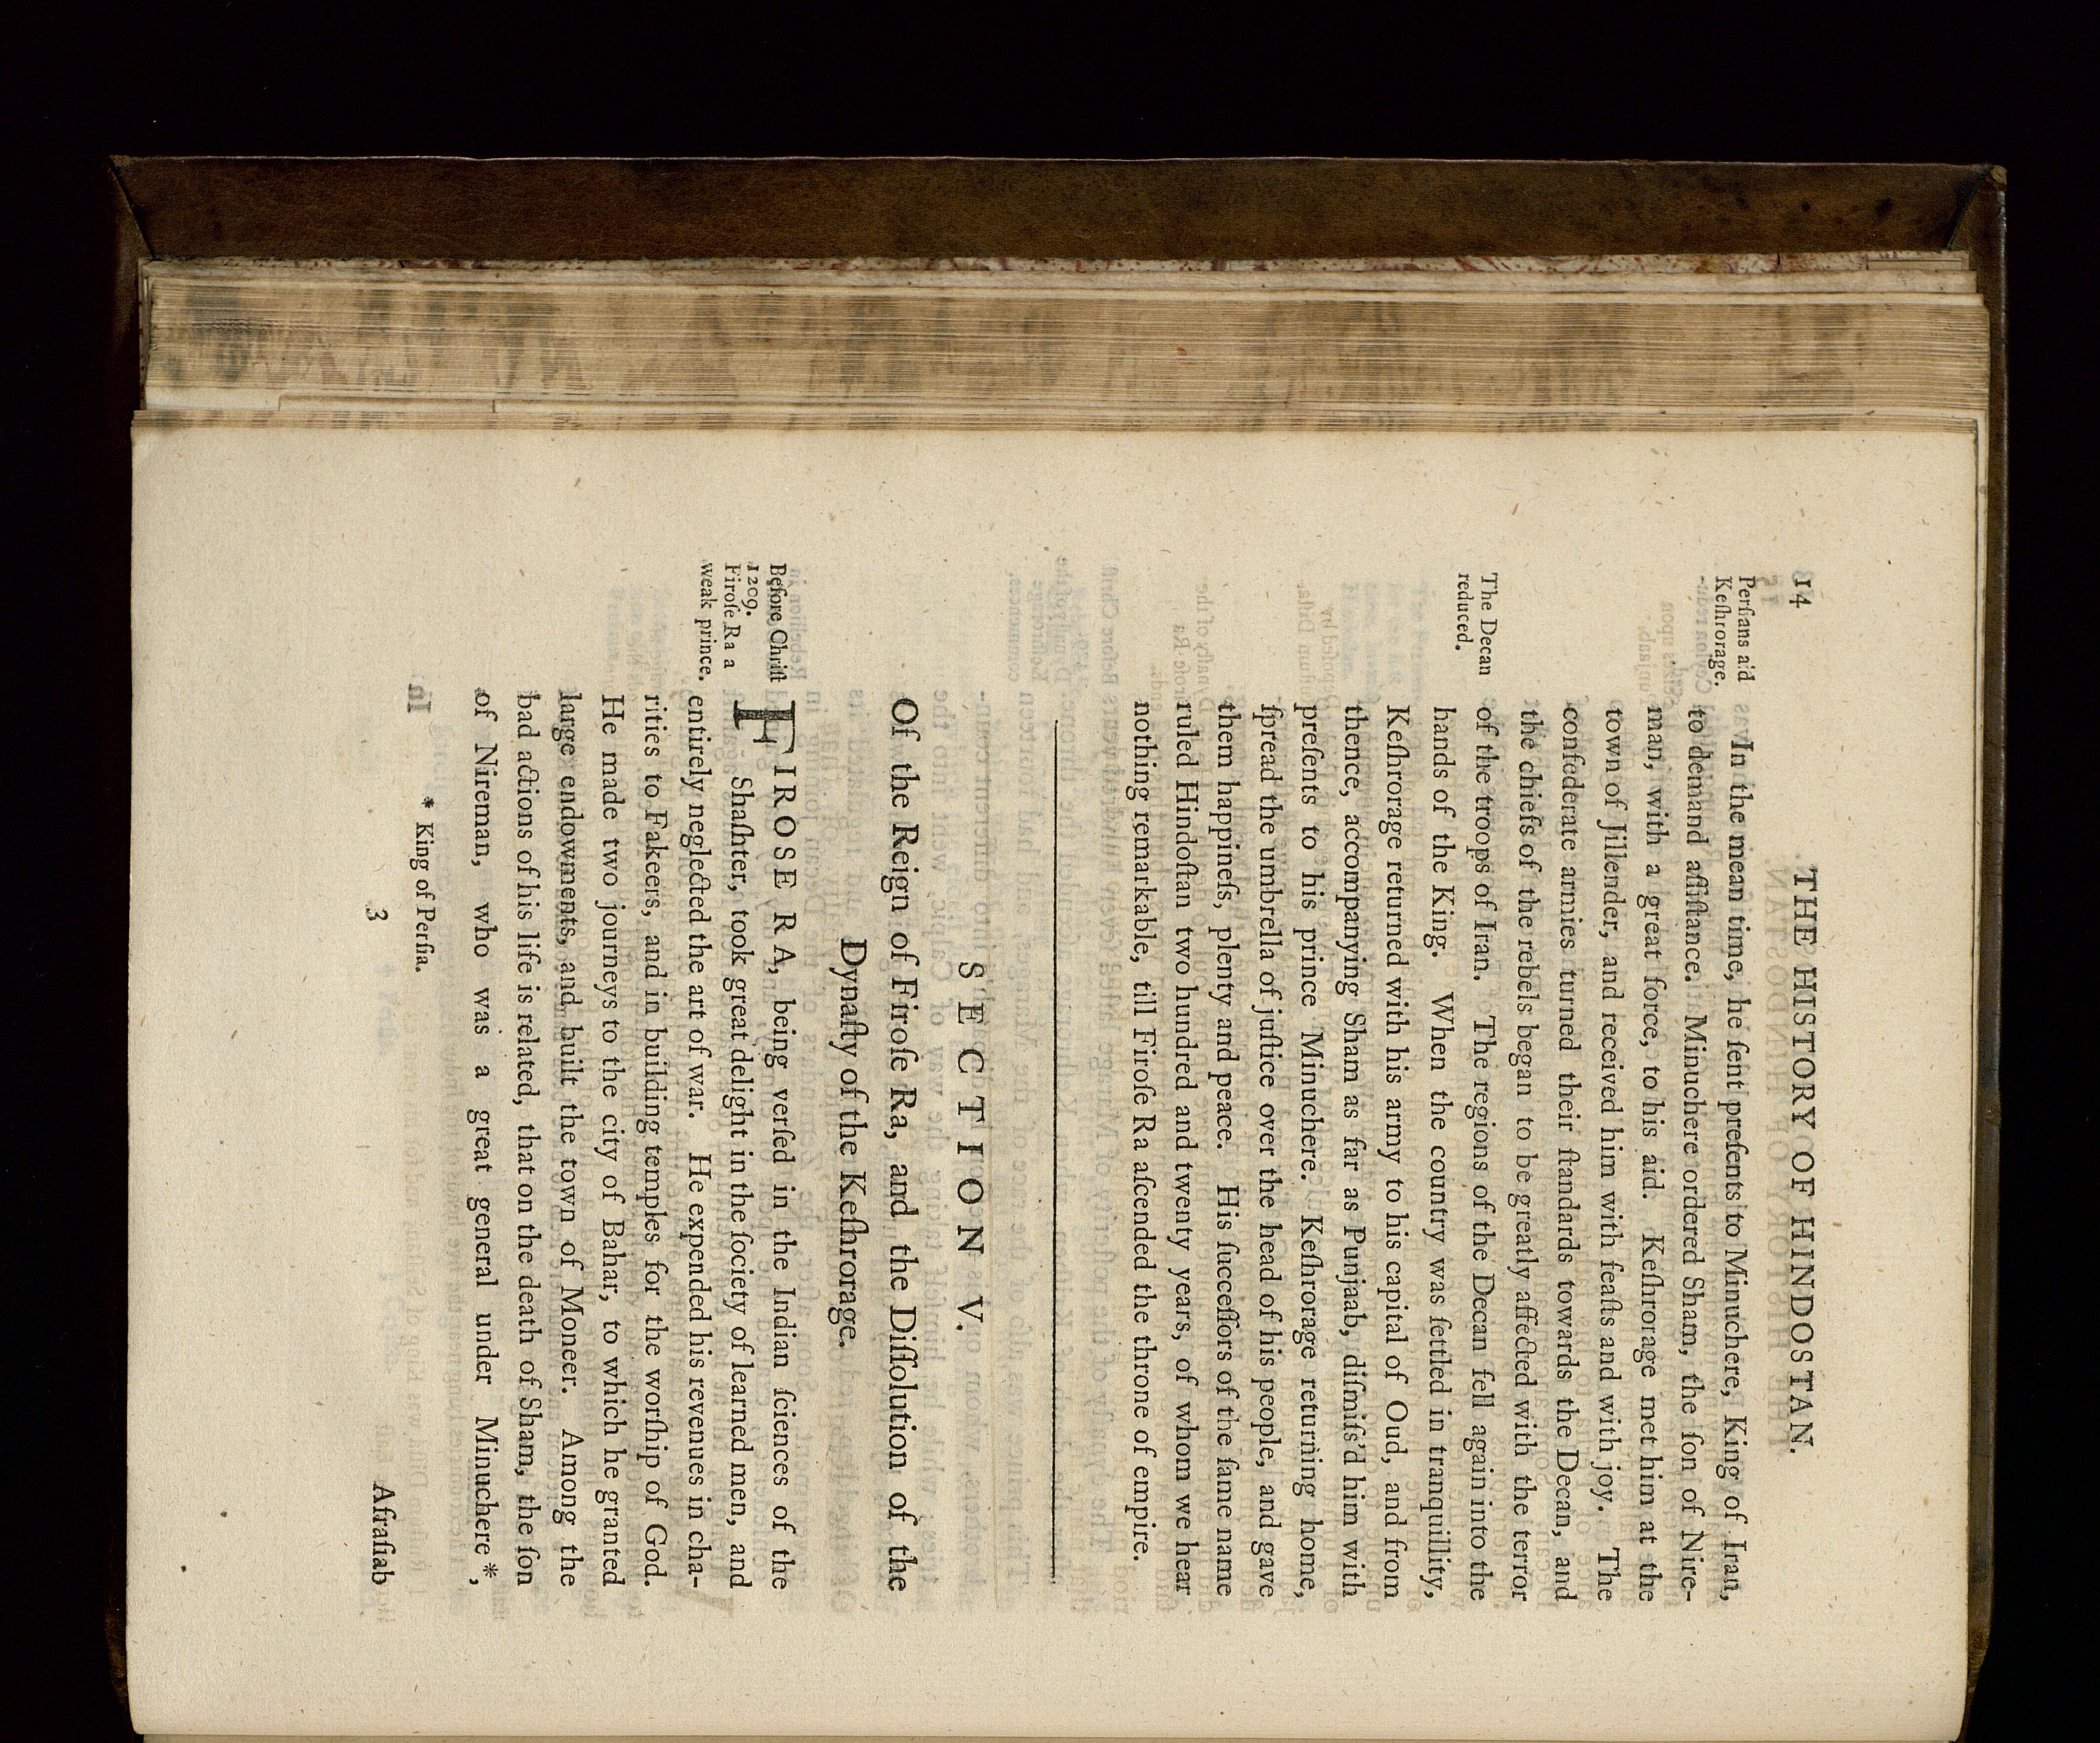 14 THE HISTORY OF HINDOSTAN.
Perſians aid
Keſhrorage.
In the mean time, he ſent preſents to Minuchere, King of Iran,
to demand aſſiſtance. Minuchere ordered Sham, the ſon of Nire-
man, with a great force, to his aid. Keſhrorage met him at the
town of Jillender, and received him with feaſts and with joy. The
confederate armies turned their ſtandards towards the Decan, and
the chiefs of the rebels began to be greatly affected with the terror
The Decan
reduced.
of the troops of Iran. The regions of the Decan fell again into the
hands of the King. When the country was ſettled in tranquillity,
Keſhrorage returned with his army to his capital of Oud, and from
thence, accompanying Sham as far as Punjaab, diſmiſs'd him with
preſents to his prince Minuchere. Keſhrorage returning home,
ſpread the umbrella of juſtice over the head of his people, and gave
them happineſs, plenty and peace. His ſucceſſors of the ſame name
ruled Hindoſtan two hundred and twenty years, of whom we hear
nothing remarkable, till Firoſe Ra aſcended the throne of empire.
SECTION V.
Of the Reign of Firoſe Ra, and the Diſſolution of the
Dynaſty of the Keſhrorage.
Before Chriſt
1209.
Firoſe Ra a
weak prince.
FIROSE RA, being verſed in the Indian ſciences of the
Shaſhter, took great delight in the ſociety of learned men, and
entirely neglected the art of war. He expended his revenues in cha-
rities to Fakeers, and in building temples for the worſhip of God.
He made two journeys to the city of Bahar, to which he granted
large endowments, and built the town of Moneer. Among the
bad actions of his life is related, that on the death of Sham, the ſon
of Nireman, who was a great general under Minuchere *,
* King of Perſia.
3 Afraſiab